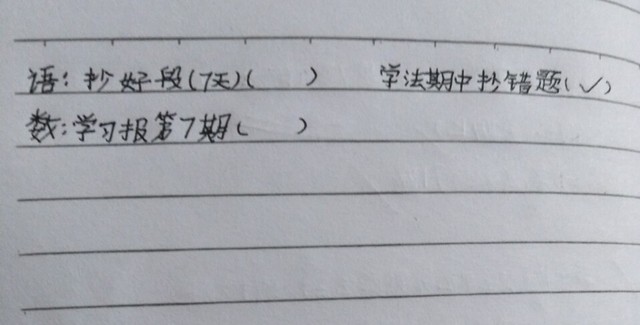 语：抄好段(7天)(  )  学法期中抄错题(✓)
数：学习报第7期(  )